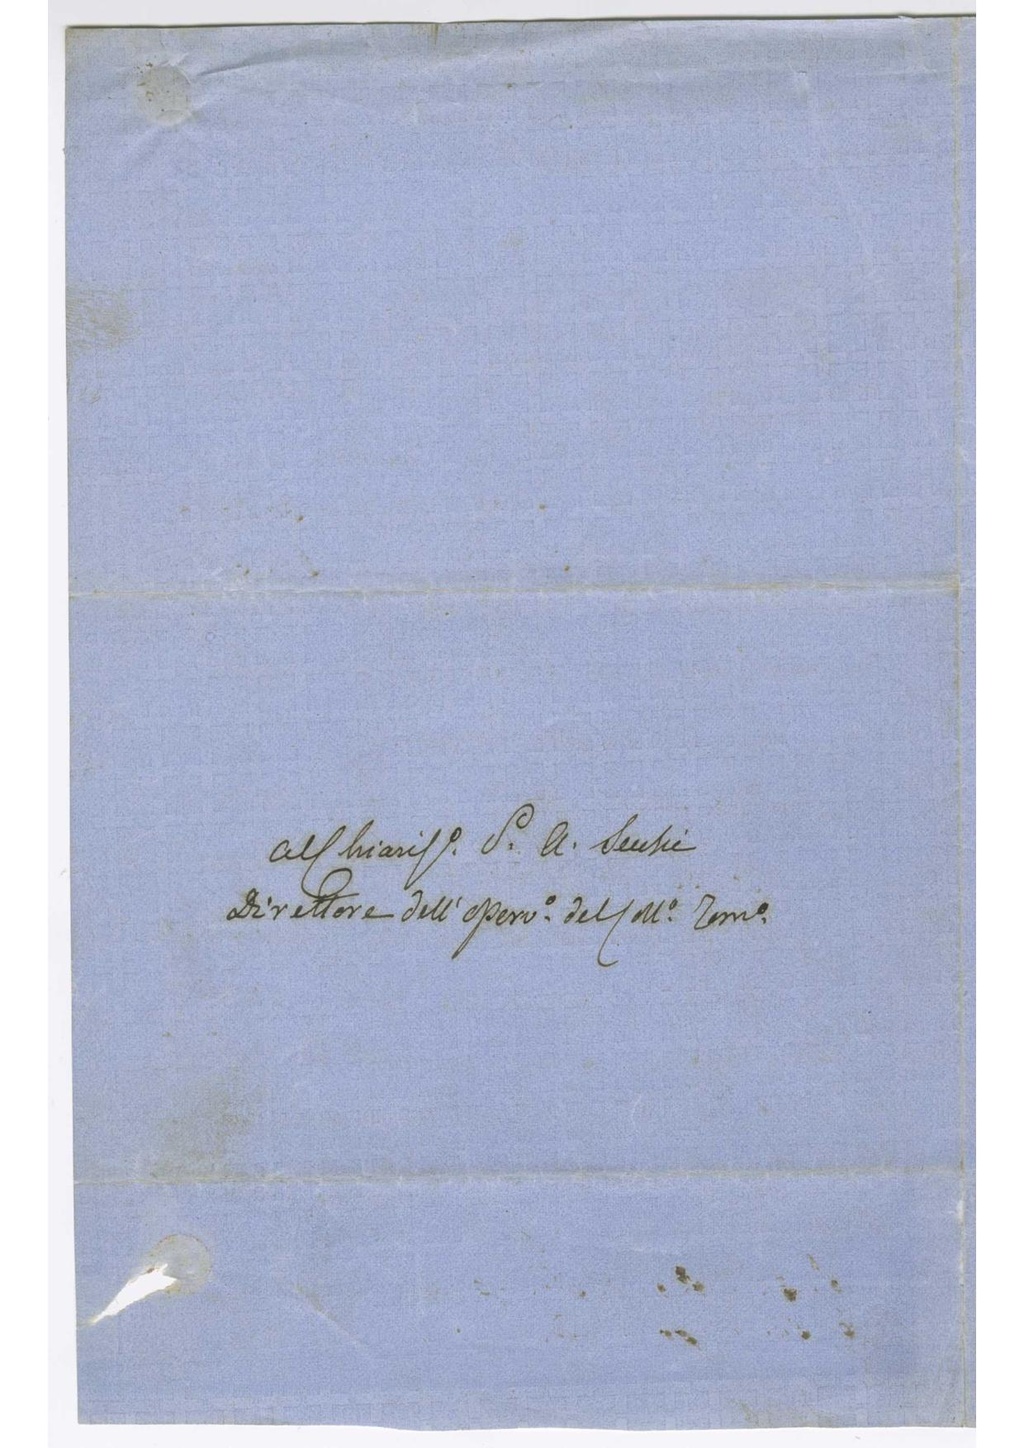 Al Chiariss.º P. A. Secchi
Direttore dell' Osserv.º del Coll.º Rom.º